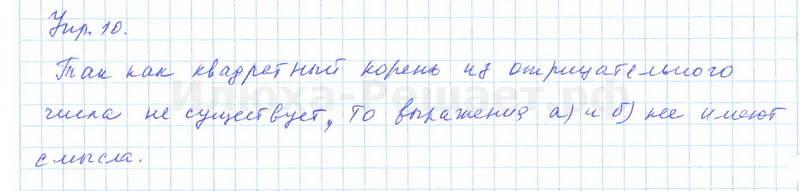 Упр. 10.
Так как квадретный корень из отрицательного
числа не существует, то выражения а) и б) не имеют
смысла.
Илюха-Решает.рф